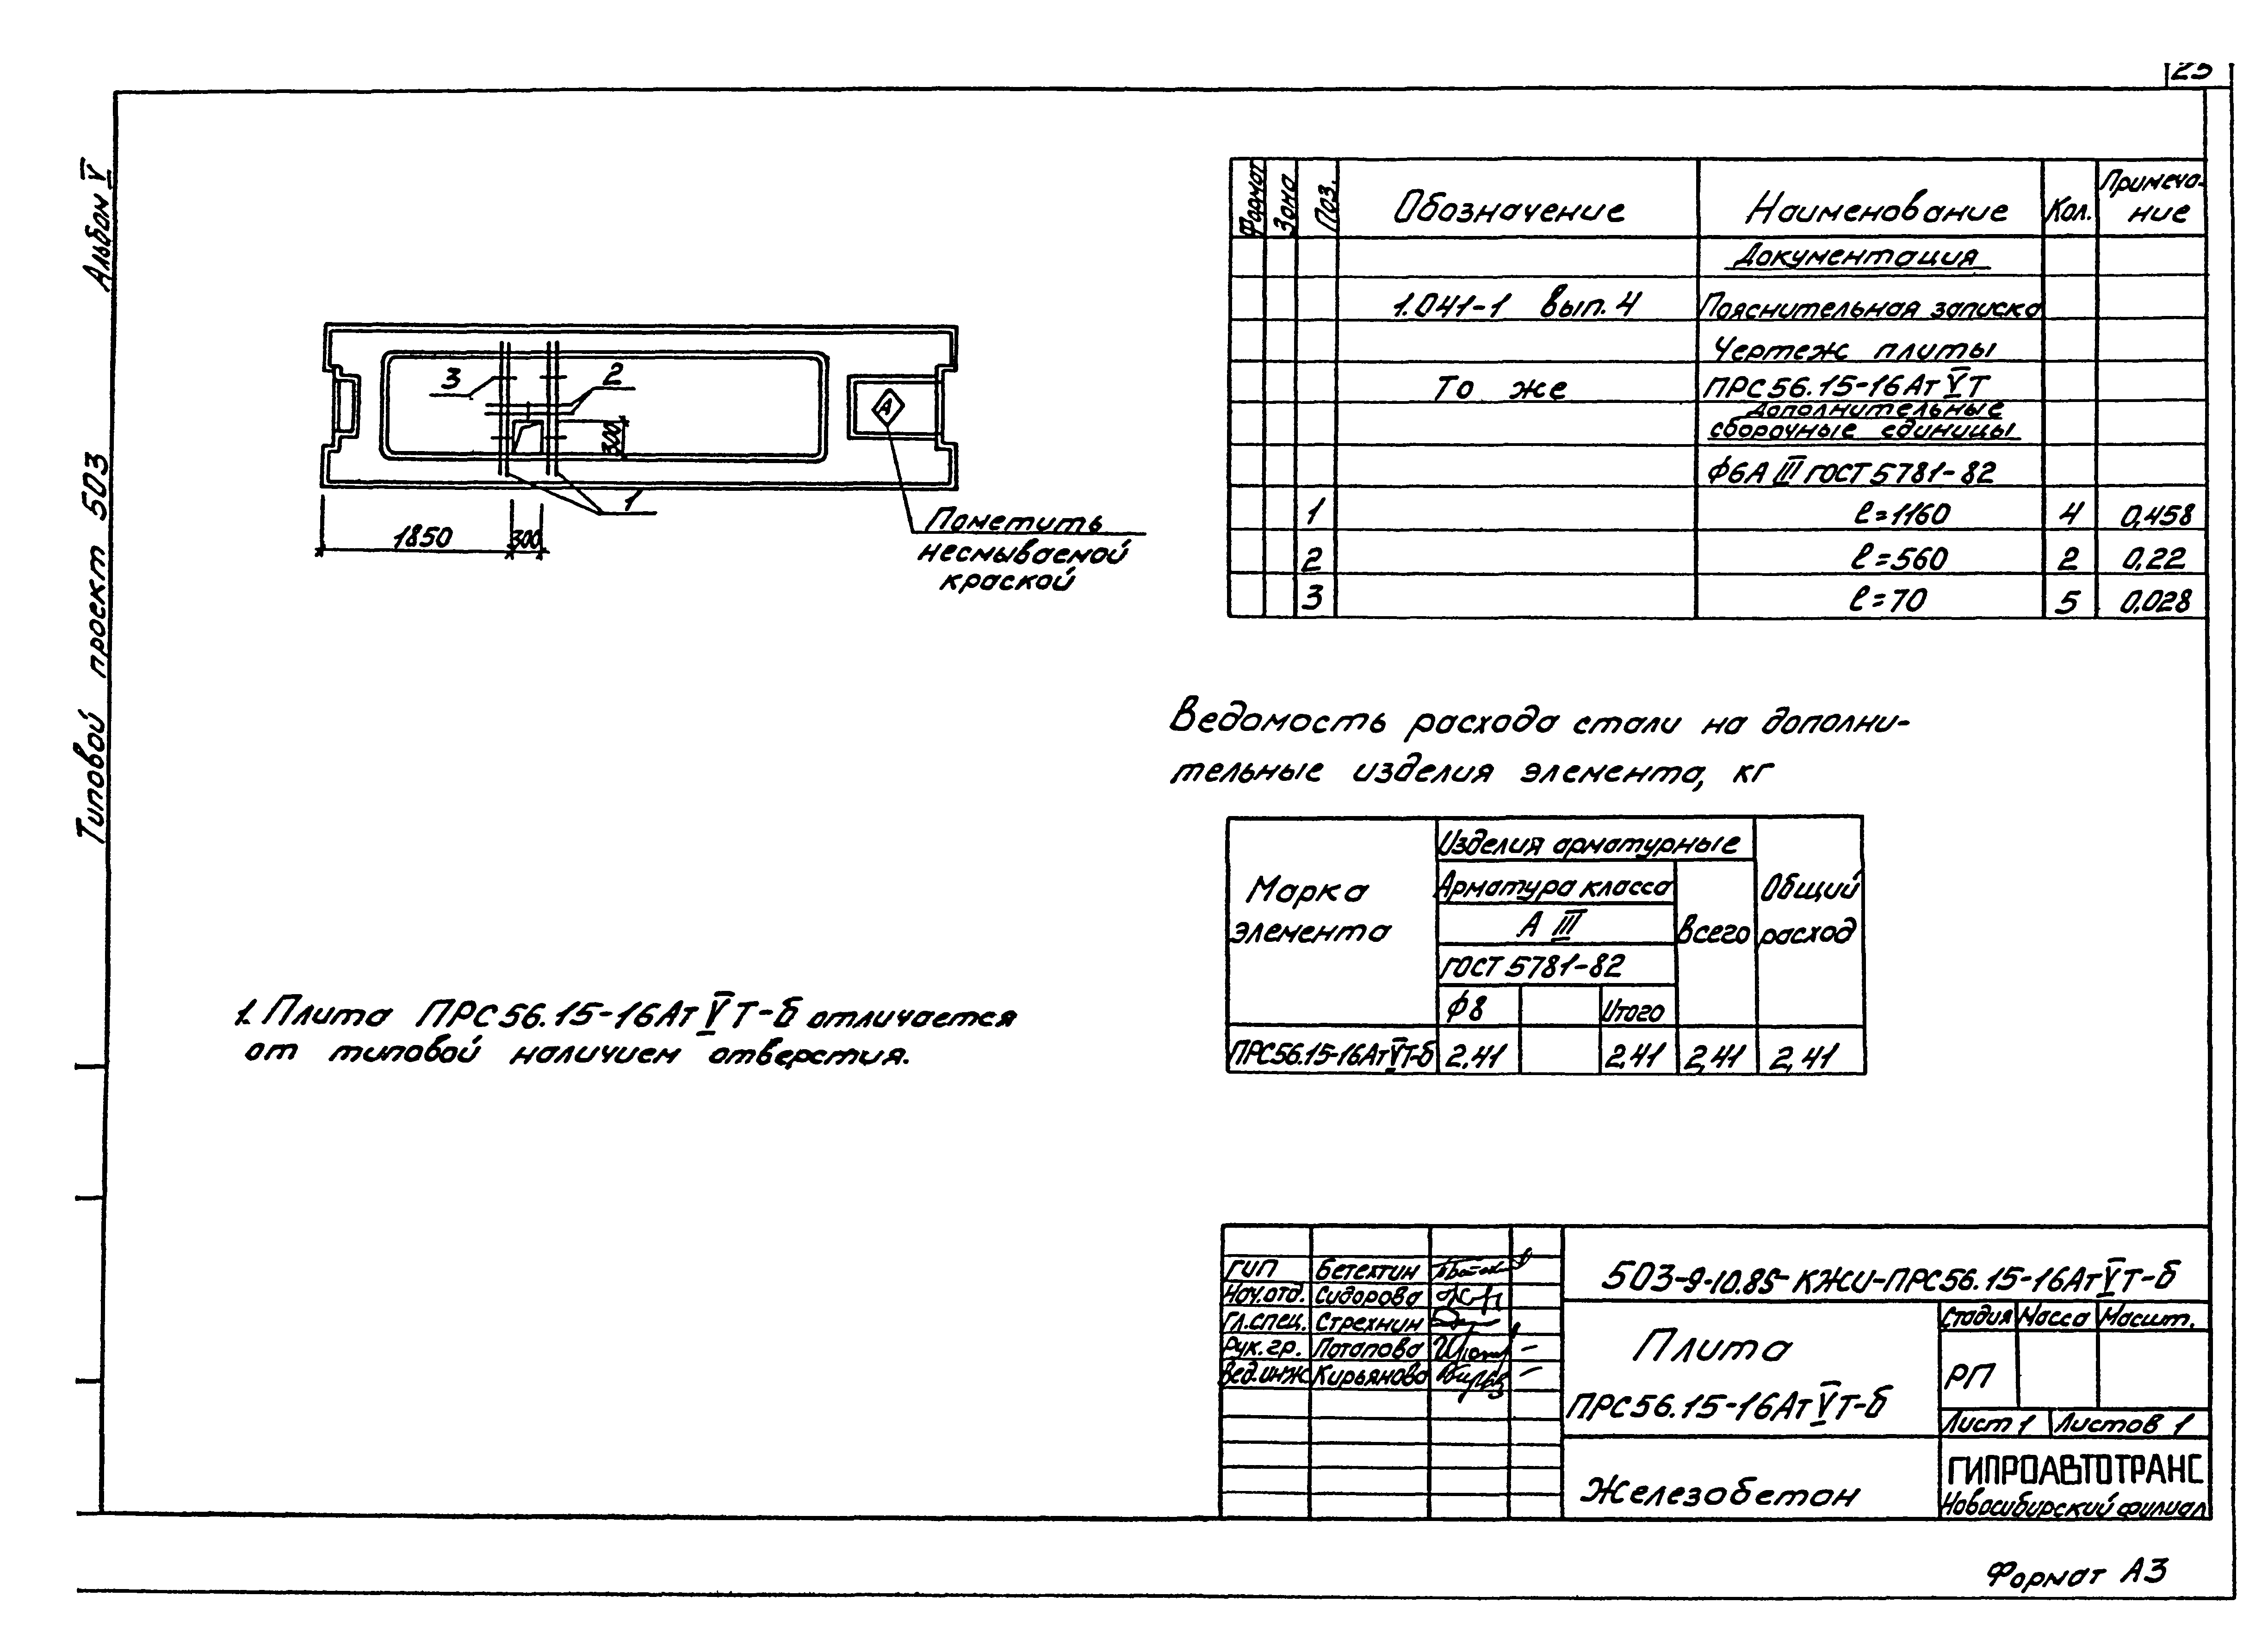 25
Альбом V
Типовой проект 503
3
2
300
1
1850
300
А
Пометить
несмываемой
краской
Формат Зона Поз. Обозначение Наименование Кол. Примеча-
ние
Документация
1.041-1 вып. 4 Пояснительная записка
Чертеж плиты
То же ПРС56.15-16АтVТ
Дополнительные
сборочные единицы
Ф6АIII ГОСТ 5781-82
1 ℓ=1160 4 0,458
2 ℓ=560 2 0,22
3 ℓ=70 5 0,028
Ведомость расхода стали на дополни-
тельные изделия элемента, кг
Марка
элемента
Изделия арматурные
Арматура класса
А III
ГОСТ 5781-82
Ф8 Итого
Всего
Общий
расход
ПРС56.15-16АтVТ-б 2,41 2,41 2,41 2,41
1. Плита ПРС56.15-16АтVТ-б отличается
от типовой наличием отверстия.
ГИП Бетехтин
Нач.отд. Сидорова
Гл.спец. Стрехнин
Рук.гр. Потапова
Вед.инж Кирьянова
503-9-10.85-КЖИ-ПРС56.15-16АтVТ-б
Плита
ПРС56.15-16АтVТ-б
Стадия Масса Масшт.
РП
Лист 1 Листов 1
Железобетон
ГИПРОАВТОТРАНС
Новосибирский филиал
Формат А3